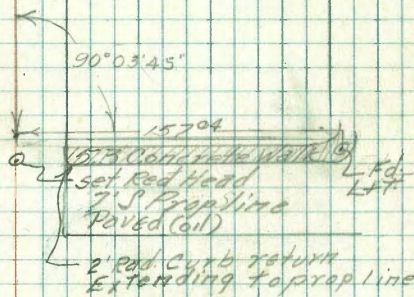 90°03'45"
157.04
Concrete Walk
Fd.
L+T
set Red Head
2' S Prop line
Paved (oil)
2' Rad. Curb return
Extending to prop line